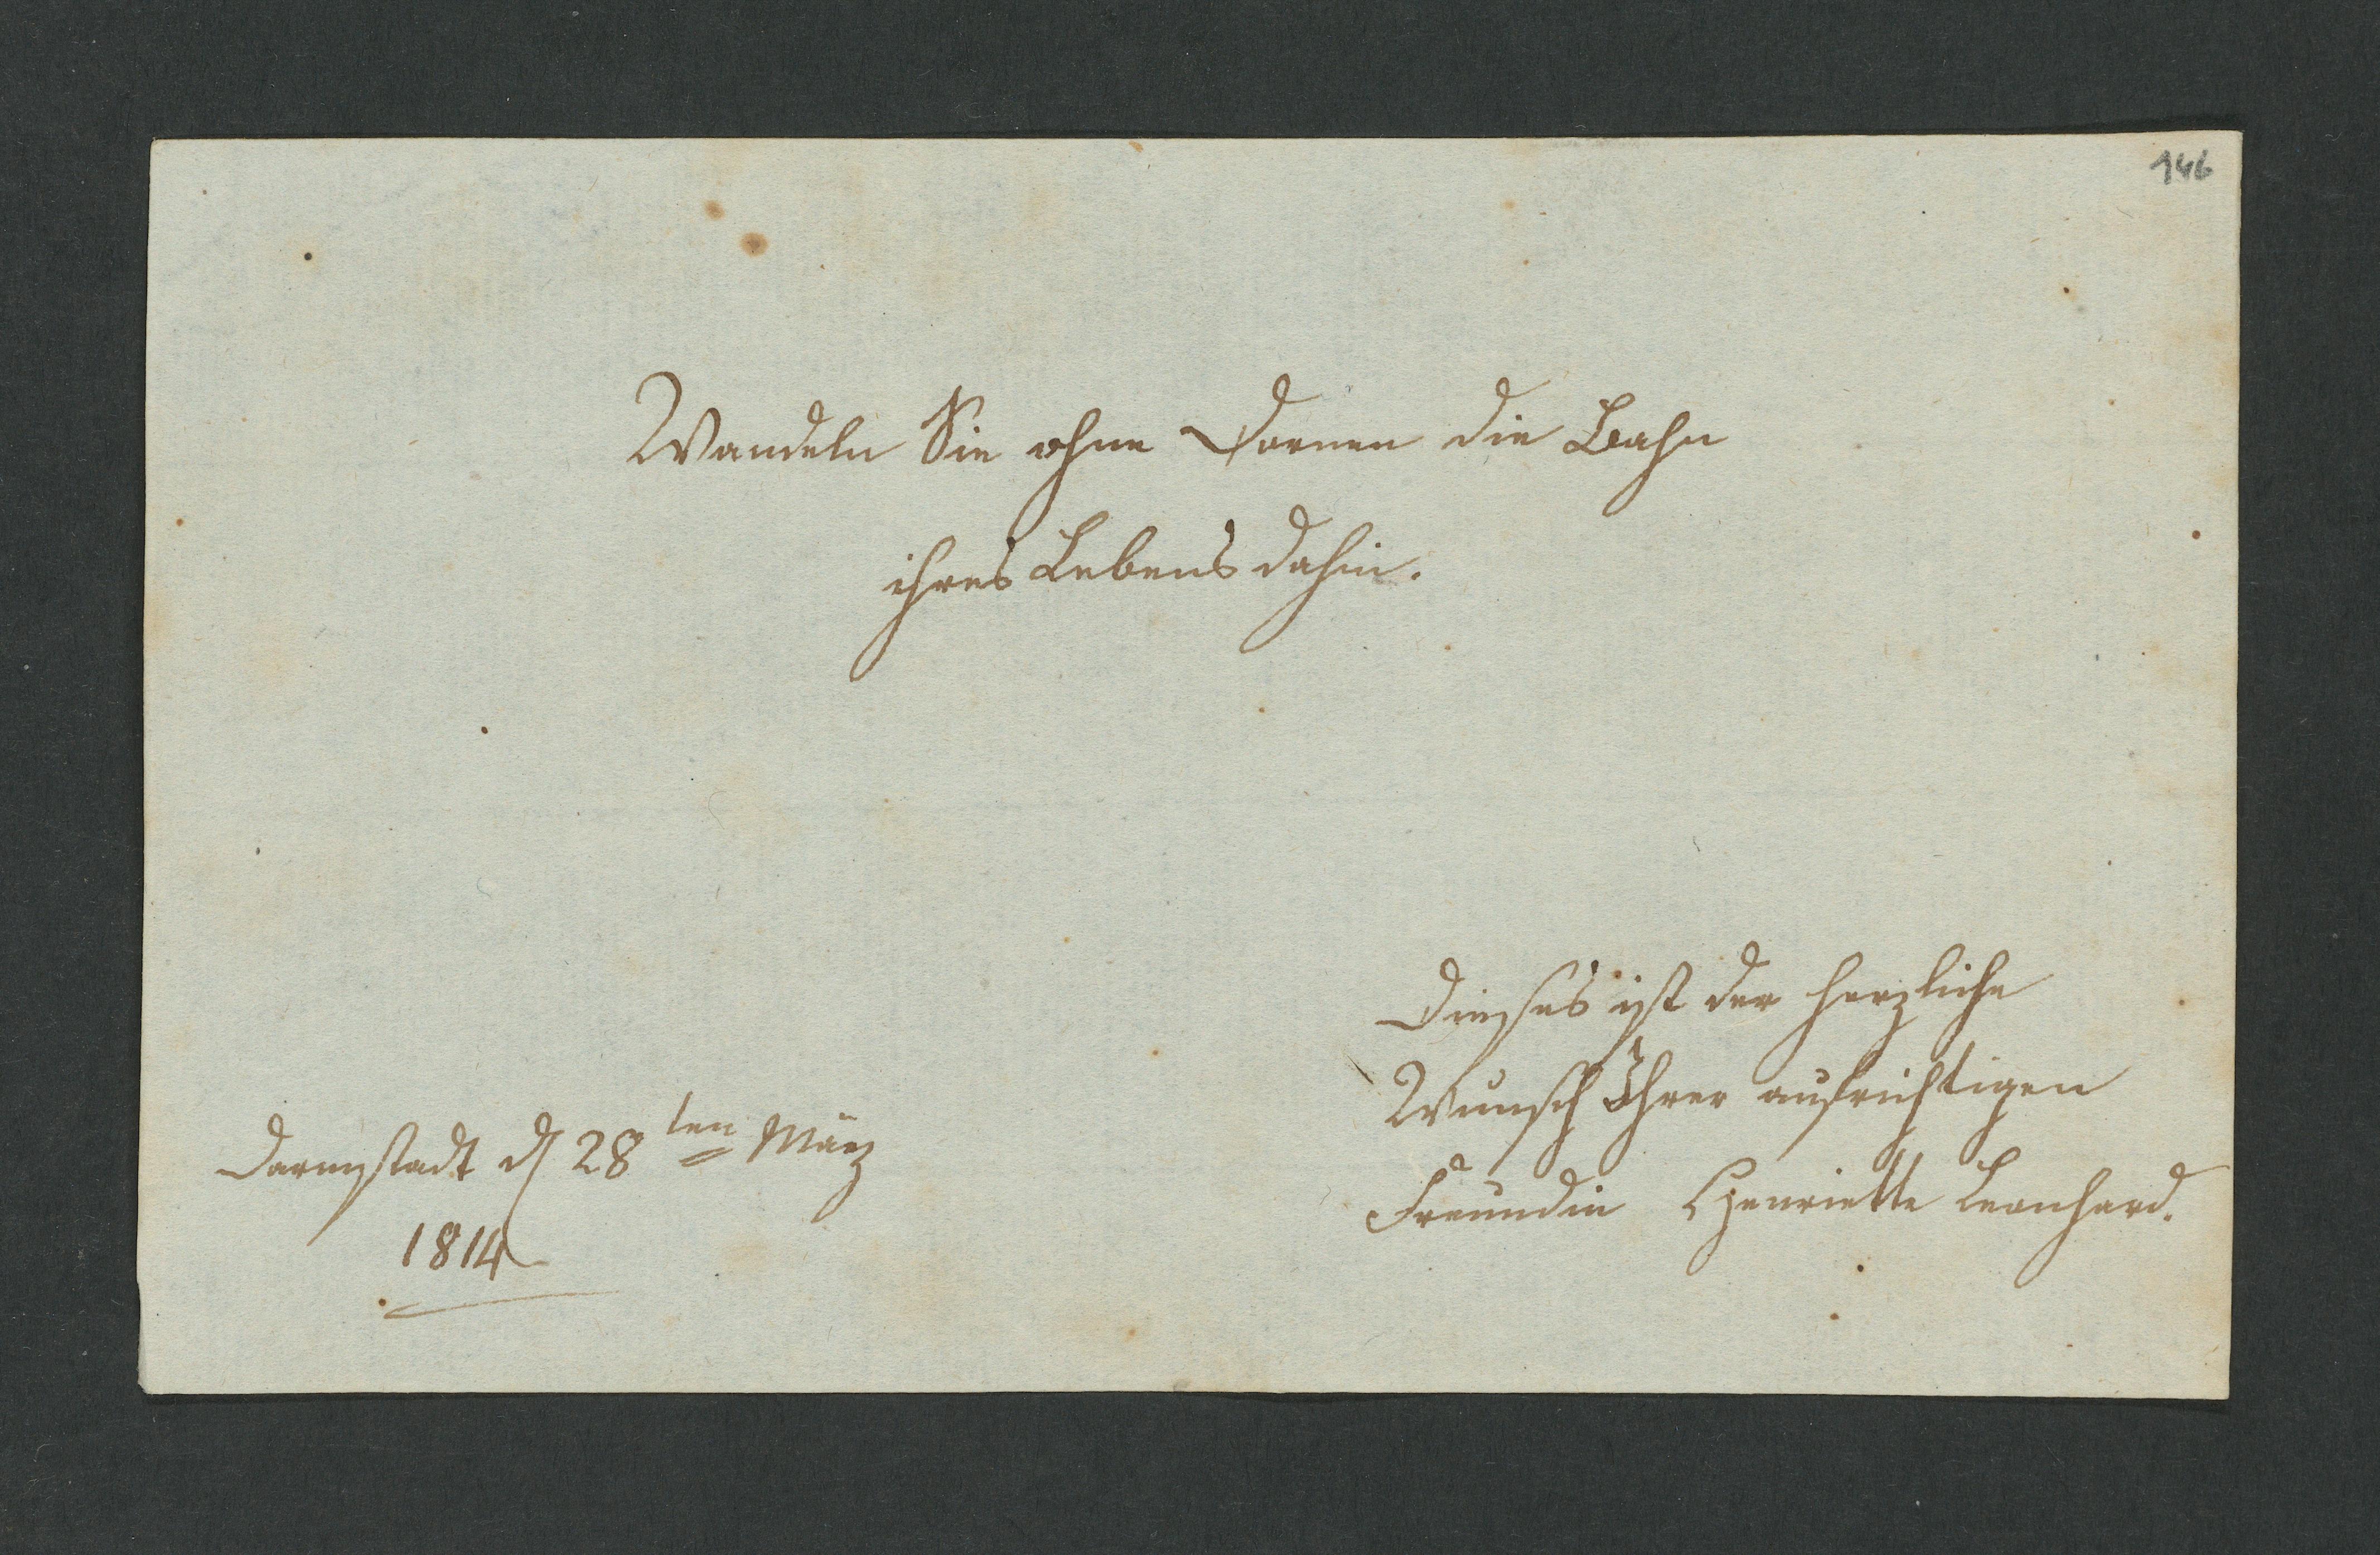 146
Wandeln Sie ohne Dornen die Bahn
ihres Lebens dahin.
Dieses ist der herzliche
Wunsch Ihrer aufrichtigen
Freundin Henriette Leonhard.
Darmstadt d 28ten März
1814